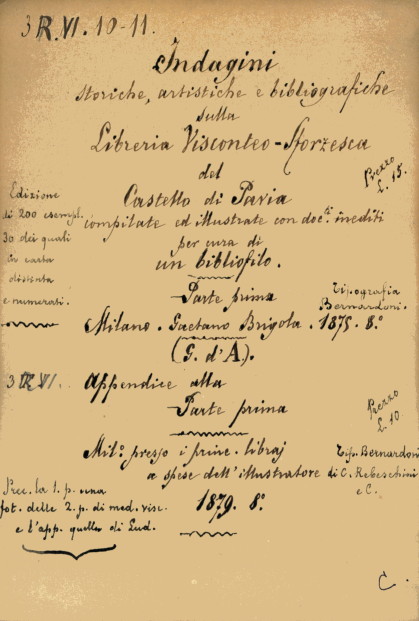 3 R.VI. 10-11.
Indagini
storiche, artistiche e bibliografiche
sulla
Libreria Visconteo-Sforzesca
del
Prezzo
L. 15.
Castello di Pavia
Edizione
di 200 esempl.
30 dei quali
in carta
distinta
e numerati.
compilate ed illustrate con doc.ti inediti
per cura di
un bibliofilo.
Parte prima
Tipografia
Bernardoni.
Milano. Gaetano Brigola. 1875. 8.°
(G. d'A.).
3 R.VI.
Appendice alla
Parte prima
Prezzo
L. 10
Mil.° presso i princ. libraj
a spese dell'illustratore
1879. 8.°
Tip. Bernardoni
di C. Rebeschini
e C.
Prec. la 1. p. una
fot. delle 2. p. di med. visc.
e l'app. quella di Lud.
C.